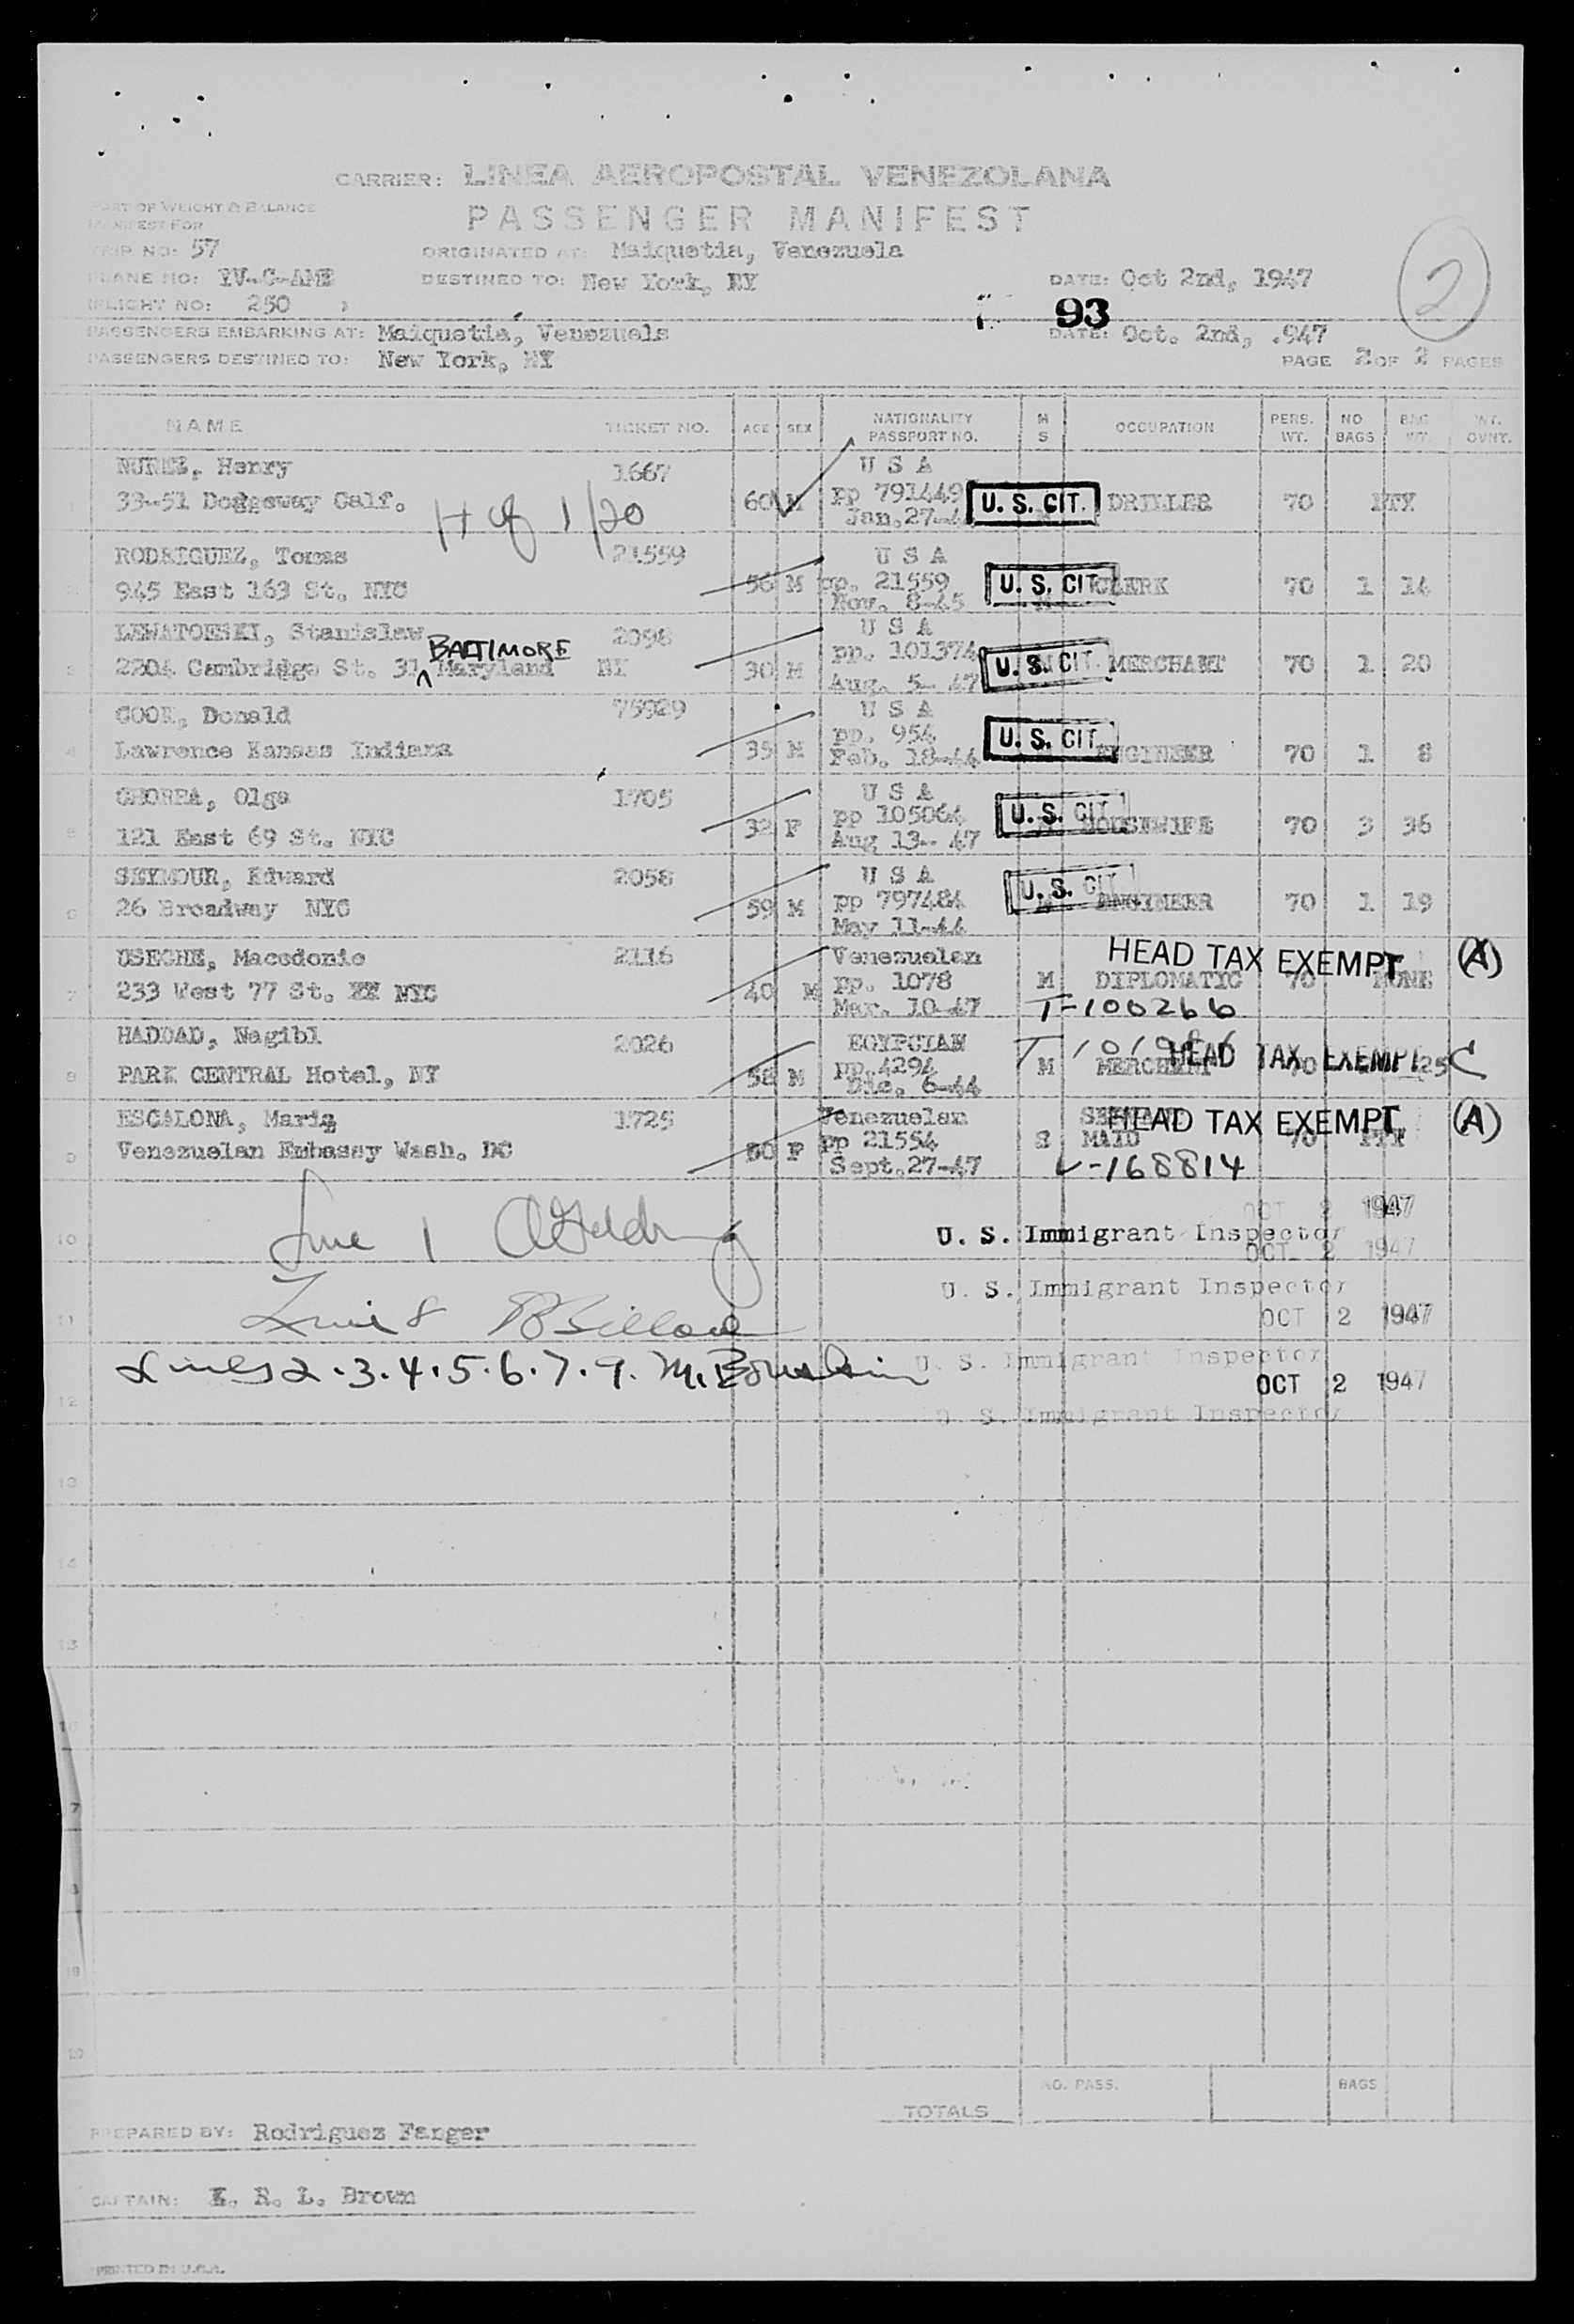 CARRIER: LINEA AEROPOSTAL VENEZOLANA
PART OF WEIGHT & BALANCE
MANIFEST FOR
PASSENGER MANIFEST
TRIP NO: 57 ORIGINATED AT: Maiquetia, Venezuela
PLANE NO: YV-C-AME DESTINED TO: New York, NY DATE: Oct 2nd, 1947
FLIGHT NO: 250
2
93
PASSENGERS EMBARKING AT: Maiquetia, Venezuela DATE: Oct. 2nd, .947
PASSENGERS DESTINED TO: New York, NY PAGE 2 OF 2 PAGES
NAME TICKET NO. AGE SEX NATIONALITY PASSPORT NO. M S OCCUPATION PERS. WT. NO BAGS BAG WT. WT. OVNT.
NUNEZ, Henry 1667 U S A
1 33-51 Dodgeway Calf. 60 M pp 791449 U. S. CIT. DRILLER 70 PTY
Jan.27-4
RODRIGUEZ, Tomas 21559 U S A
2 945 East 163 St. NYC 56 M pp. 21559 U. S. CIT. CLERK 70 1 14
Nov. 8-45
LEWATOESKI, Stanislaw 2098 U S A
BALTIMORE
3 2204 Cambridge St. 31 Maryland NY 30 M pp. 101374 U. S. CIT. MERCHANT 70 1 20
Aug. 5- 47
COOK, Donald 75929 U S A
4 Lawrence Kansas Indiana 35 M pp. 954 U. S. CIT. ENGINEER 70 1 8
Feb. 18-44
CHOREA, Olga 1705 U S A
5 121 East 69 St. NYC 32 F pp 105064 U. S. CIT. HOUSEWIFE 70 3 36
Aug 13- 47
SEYMOUR, Edward 2058 U S A
6 26 Broadway NYC 59 M pp 797484 U. S. CIT. ENGINEER 70 1 19
May 11-44
USECHE, Macedonio 2116 Venezuelan HEAD TAX EXEMPT (A)
7 233 West 77 St. NYC 40 M pp. 1078 M DIPLOMATIC 70 NONE
Mar. 10-47 T-100266
HADDAD, Nagibl 2026 EGYPCIAN HEAD TAX EXEMPT C
8 PARK CENTRAL Hotel, NY 58 M pp. 4294 M MERCHANT 70 25
Dic. 6-44
ESCALONA, Maria 1725 Venezuelan HEAD TAX EXEMPT (A)
9 Venezuelan Embassy Wash. DC 50 F pp 21554 S MAID 70 PTY
Sept.27-47 V-168814
OCT 2 1947
10 Line 1 U. S. Immigrant Inspector
OCT 2 1947
U. S. Immigrant Inspector
11 Line 8 OCT 2 1947
Lines 2.3.4.5.6.7.9. U. S. Immigrant Inspector
12 OCT 2 1947
U. S. Immigrant Inspector
13
14
15
7
19
20
TOTALS NO. PASS. BAGS
PREPARED BY: Rodriguez Fanger
CAPTAIN: K. R. L. Brown
PRINTED IN U.S.A.